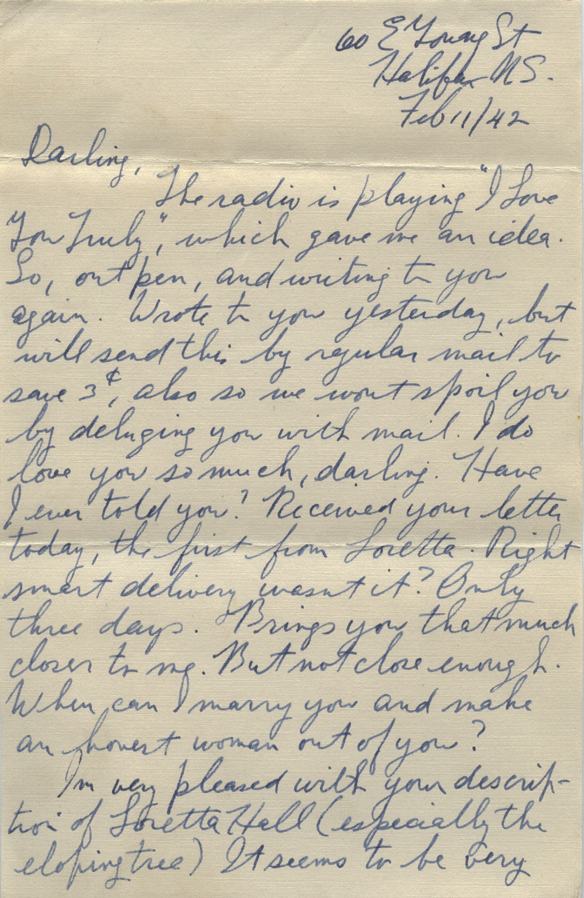 60 E Young St
Halifax N.S.
Feb 11/42
Darling,
The radio is playing "I Love
You Truly", which gave me an idea.
So, out pen, and writing to you
again. Wrote to you yesterday, but
will send this by regular mail to
save 3¢, also so we wont spoil you
by deluging you with mail. I do
love you so much, darling. Have
I ever told you? Received your letter
today, the first from Loretta. Right
smart delivery wasnt it? Only
three days. Brings you that much
closer to me. But not close enough.
When can I marry you and make
an honest woman out of you?
Im very pleased with your descrip-
tion of Loretta Hall (especially the
eloping tree) It seems to be very